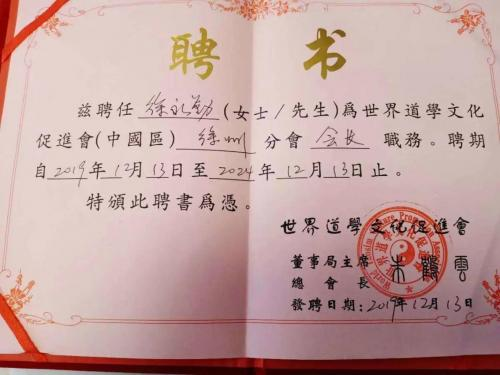 聘书
兹聘任 徐永勤 (女士/先生)為世界道學文化
促進會(中國區) 徐州 分會 会长 職務。聘期
自2019年12月13日至2024年12月13日止。
特頒此聘書為憑。
世界道學文化促進會
董事局主席
總會長 朱鶴雲
發聘日期:2019年12月13日